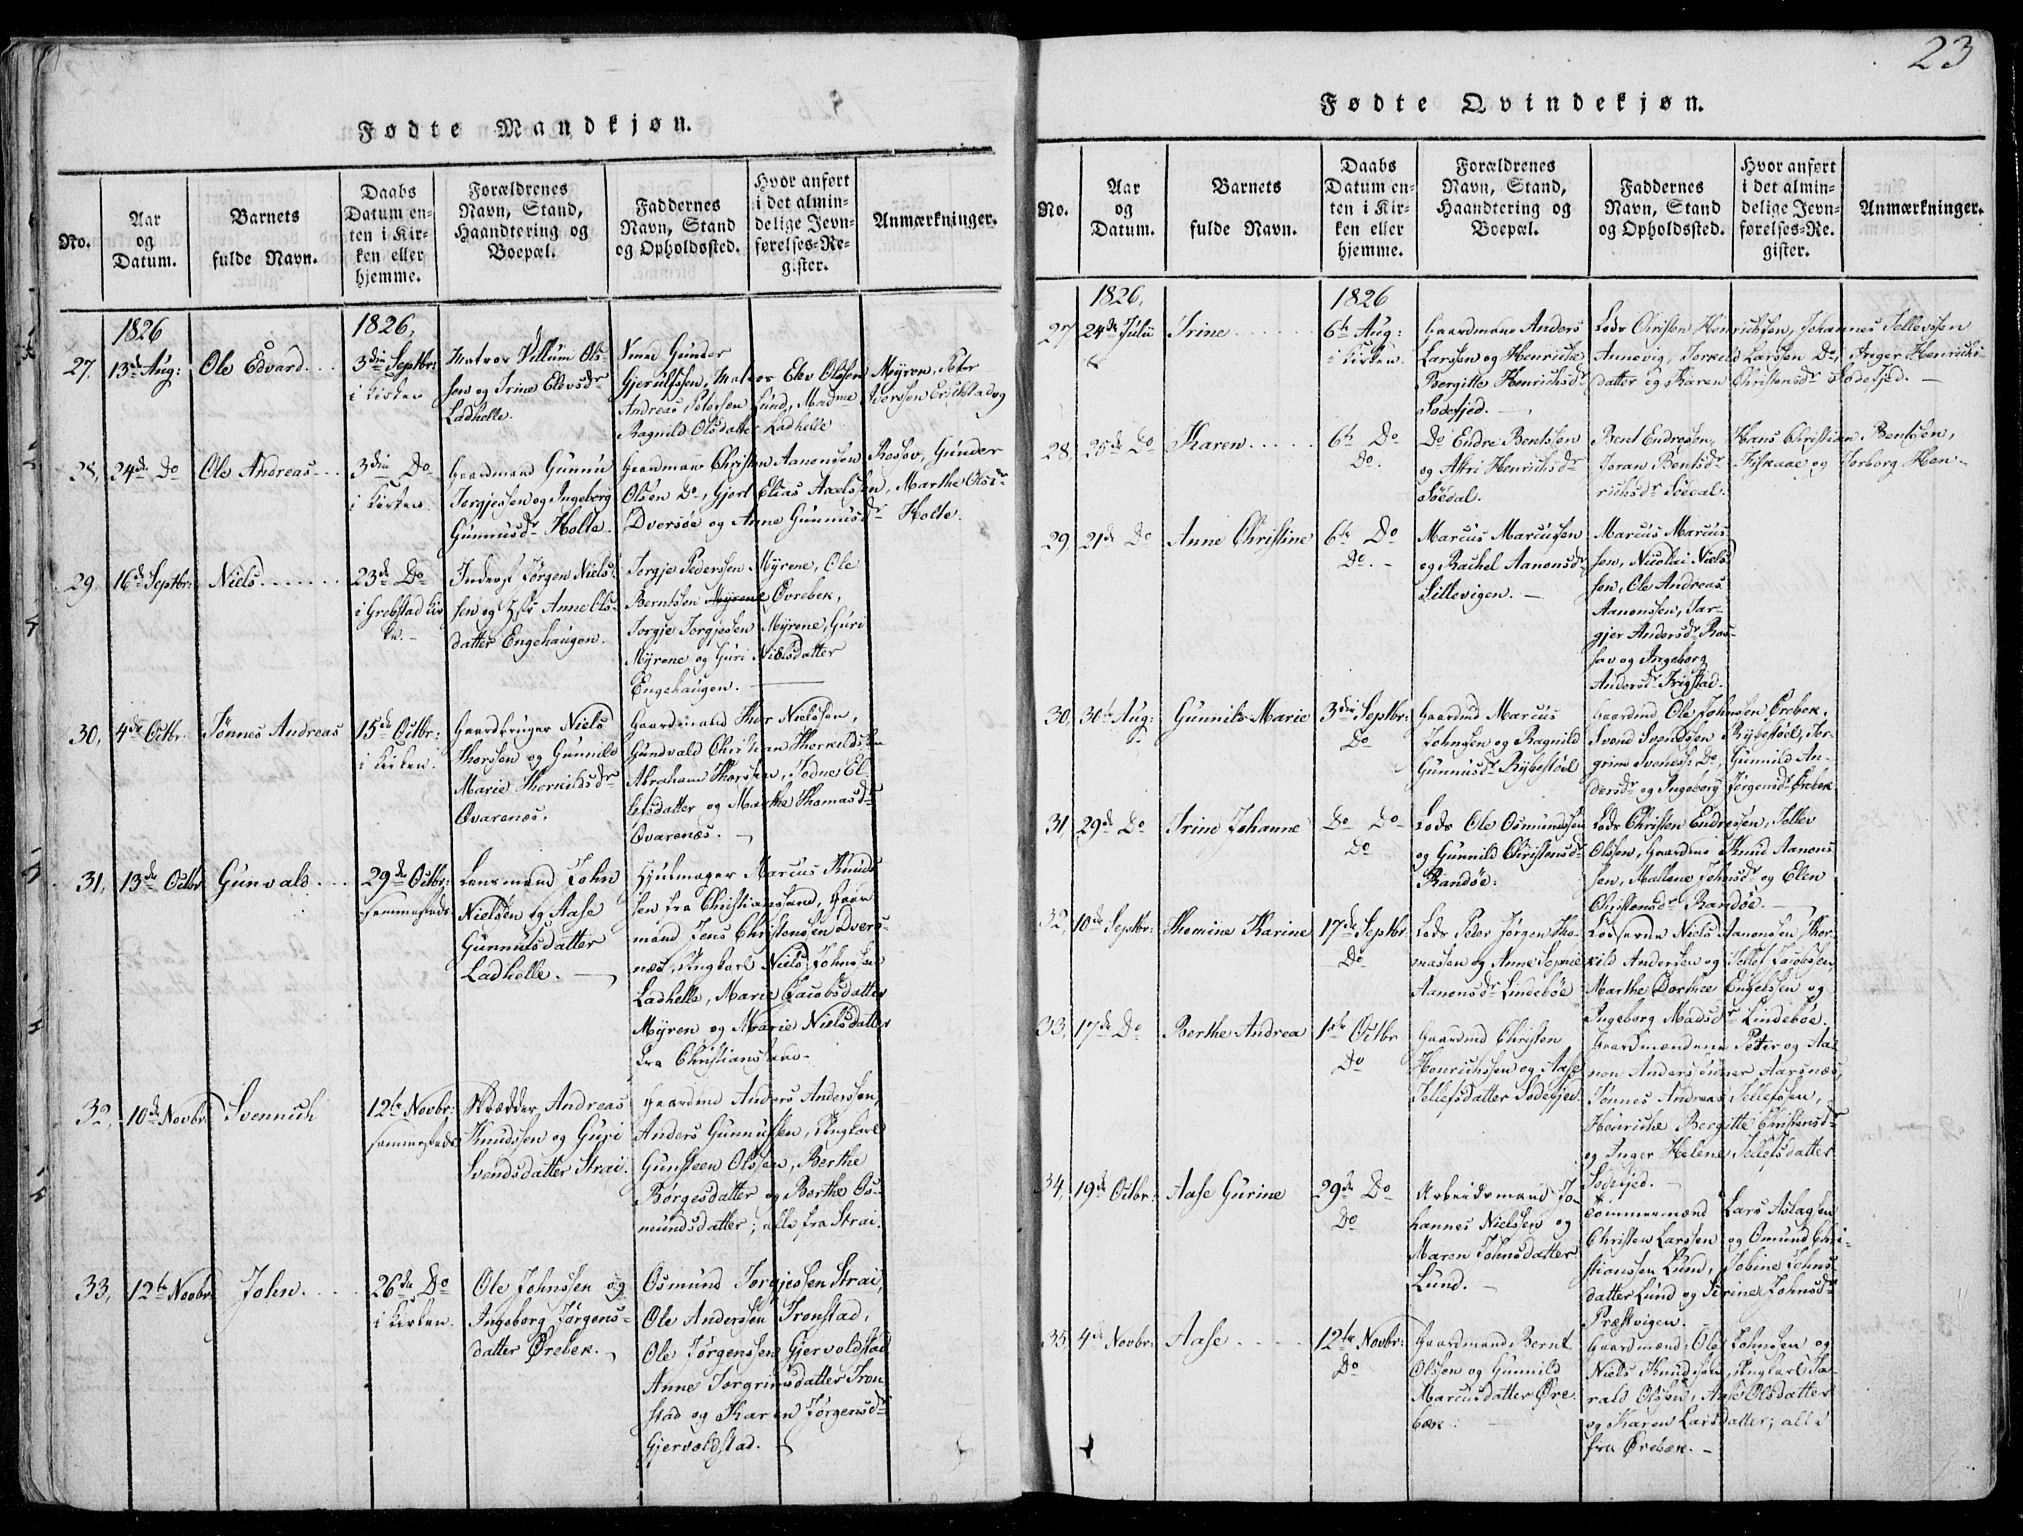 23
Fødte Mandkjøn.
No.
Aar
og
Datum.
Barnets
fulde Navn.
Daabs
Datum en-
ten i Kir-
ken eller
hjemme.
Forældrenes
Navn, Stand,
Haandtering og
Boepæl.
Faddernes
Navn, Stand
og Opholdssted.
Hvor anført
i det almin-
delige Jevn-
førelses-Re-
gister.
Anmærkninger.
1826
1826,
27. 13de Aug: Ole Edvard
3die Septbr:
i Kirken
Matros Villum Ols-
sen og Trine Elevsdr
Ladhelle.
Gunder
Gjerulfssen, Matros Elev Olssen Myren, Peter
Andreas Petersen Lund, Madme
Ragnild Olsdatter Ladhelle
28, 24de Do Ole Andreas
3die Do
i Kirken.
Gaardmand Gunnu
Torgjessen og Ingeborg
Gunnusdr Holte.
Gaardmand Christen Aanonssen Rosov, Gunder
Olsen Do, Gjort Elias Axelsen, Marthe Olsdr
Dversøe og Anne Gunnusdr Holte.
29. 16de Septbr: Niels
23de Do
i Grebstad Kir
ke.
Inderst Jørgen Niels-
sen og Anne Ols-
datter Engehaugen.
Torgje Pedersen Myrene, Ole
Berntssen Myrene Øvrebek,
Torgje Torgjessen Myrene, Guri
Myrene og Guri Nielsdatter
Engehaugen.
30, 4de Octbr. Tønnes Andreas
15de Octbr:
i Kirken.
Gaardbruger Niels
Thorssen og Gunnild
Marie Thorkildsdr
Qvarenæs.
Gaardmand Thor Nielssen,
Gundvald Christian Thorkildsen
Abraham Thorssen, Todne El-
lefsdatter og Marthe Thomasdr
Qvarenæs.
31, 13de Octbr Gunvald
29de Octbr:
sammesteds
Lensmand John
Nielsen og Aase
Gunnufsdatter
Ladhelle.
Hjulmager Marcus Knuds
sen fra Christianssand, Gaar
mand Jens Christenssen Dvers-
næs, Ungkarl Niels Johnsen
Ladhelle, Marie Jacobsdatter
Myren og Marie Nielsdatter
fra Christianssand.
32, 10de Novbr Svennich
12te Novbr:
sammesteds
Skrædder Andreas
Knudssen og Guri
Svendsdatter Strai.
Gaardmd Anders Anderssen,
Anders Gunnufssen, Ungkarl
Gunsteen Olssen, Berthe
Børgesdatter og Berthe Os-
mundsdatter; alle fra Strai.
33, 12te Novbr John
26de Do
i Kirken.
Ole Johnssen og
Ingeborg Jørgens-
datter Ørebek.
Osmund Torgjessen Strai,
Ole Anderssen Tronstad,
Ole Jørgenssen Gjervoldstad
Anne Torgrimsdatter Tron
stad og Karen Jørgensdr
Gjervoldstad.
Fødte Qvindekjøn.
No.
Aar
og
Datum.
Barnets
fulde Navn.
Daabs
Datum en-
ten i Kir-
ken eller
hjemme.
Forældrenes
Navn, Stand,
Haandtering og
Boepæl.
Faddernes
Navn, Stand
og Opholdssted.
Hvor anført
i det almin-
delige Jevn-
førelses-Re-
gister.
Anmærkninger.
1826,
1826
27 24de Julii Trine
6te Aug:
i Kirken.
Gaardmand Anders
Larssen og Henriche
Bergitte Henrichsdr
Sodefjed.
Lods Christen Henrichssen, Johannes Tellevssen
Annevig, Torkild Larssen Do, Inger Henrichs-
datter og Karen Christensdr Sodefjed.
28, 25de Do Karen
6te Do
Do.
Do Endre Bentssen
og Henrichsdr
Søedal.
Bent Endressen, Hans Christian Bentsen,
Joran Bentsdr Fiskaae og Torborg Hen-
richsdr Søedal.
29, 21de Do Anne Christine
6te Do
Do.
Marcus Marcussen
og Rachel Aanonsdr
Littevigen.
Marcus Marcus
sen, Nicolai Niels
sen, Ole Andreas
Aanonssen, Tar-
gjer Andersdr Ros-
sav og Ingeborg
Andersdr Trigstad.
30, 30te Aug: Gunnild Marie
3die Septbr:
Do
Gaardmd Marcus
Johnsen og Ragnild
Gunnusdr Rybestøel
Gaardmd Ole Johnsen Ørebek,
Svend Svendssen Rybestøel, Tor-
grim Svenss: Do, Gunnild An-
dersdr og Ingeborg Jørgensdr Ørebek
31, 29de Do Trine Johanne
Do Do
Do
Lods Ole Osmundssen
og Gunnild Christensdr
Randøe.
Lods Christen Endressen, Tellev
Olssen, Gaardmd Knud Aanons
sen, Mallene Johnsdr og Elen
Christensdr Randøe.
32, 10de Septbr: Thomine Karine
17de Septbr
Do
Lods Peder Jørgen Tho-
massen og Anne Sophie
Aanonsdr Lindebøe
Lodserne Niels Aanonsen, Thor-
kild Andersen og Tellef Jacobsen,
Marthe Dorthea Engelsen og
Ingeborg Madsdr Lindebøe.
33, 17de Do Berthe Andrea
1ste Octbr
Do
Gaardmd Christen
Henrichssen og Aase
Tellefsdatter Sodefjed.
Gaardmændene Peter og Aa-
non Anderssønner Aarsnæs,
Tønnes Andreas Tellefssen,
Henriche Bergitte Christensdr
og Inger Helene Tellefsdatter
Sodefjed.
34, 19de Octbr: Aase Gurine
29de Do
Do
Arbeidsmand Jo-
hannes Nielssen og
Maren Johnsdatter
Lund.
Tømmermænd Lars Aslagsen
Christen Larssen og Omund Chri-
stianssen Lund, Jobine Johns-
datter Lund og Sirine Johnsdr
Præstvigen.
35, 4de Novbr: Aase
12te Novbr:
Do
Gaardmand Bernt
Olssen og Gunnild
Marcusdatter Øre
bæk.
Gaardmænd: Ole Johnsen og
Niels Knudsen, Ungkarl Ta-
rald Olssen, Aase Olsdatter
og Karen Larsdatter; alle
fra Ørebæk.